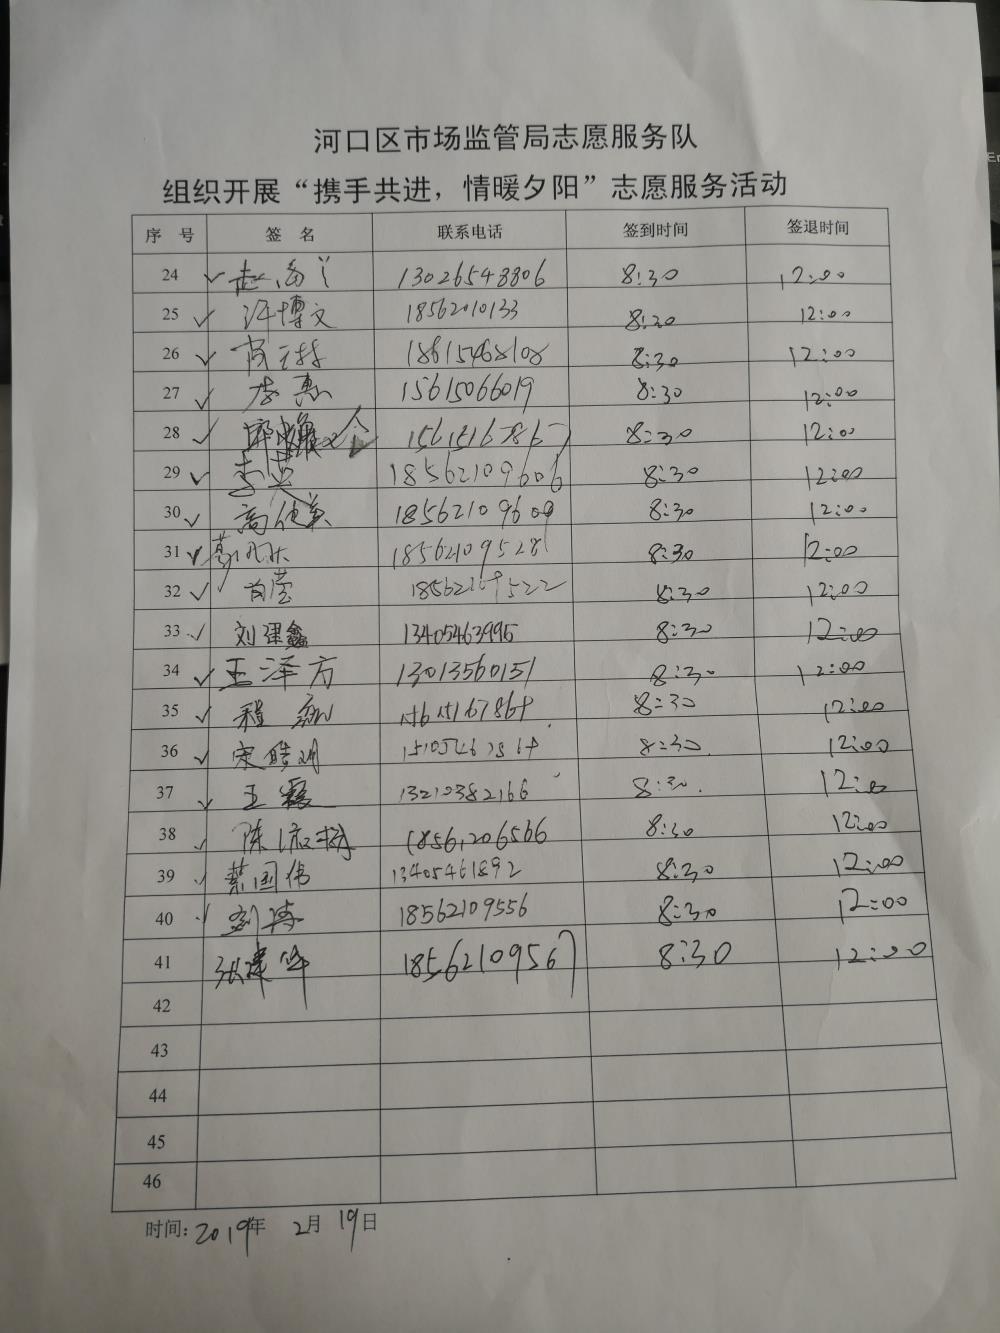 河口区市场监管局志愿服务队
组织开展“携手共进，情暖夕阳”志愿服务活动
序 号 签 名 联系电话 签到时间 签退时间
24 ✓ 13026548806 8:30 12:00
25 ✓ 许博文 18562010133 8:30 12:00
26 ✓ 18615468108 8:30 12:00
27 ✓ 李惠 15615066019 8:30 12:00
28 ✓ 8:30 12:00
29 ✓ 李英 18562109606 8:30 12:00
30 ✓ 18562109609 8:30 12:00
31 ✓ 18562109528 8:30 12:00
32 ✓ 肖莹 18562109522 8:30 12:00
33 ✓ 刘建鑫 13405463995 8:30 12:00
34 ✓ 王泽方 13013560151 8:30 12:00
35 ✓ 8:30 12:00
36 ✓ 8:30 12:00
37 ✓ 王霞 13210382166 8:30 12:00
38 ✓ 18561206566 8:30 12:00
39 ✓ 蔡国伟 13405461892 8:30 12:00
40 ✓ 刘涛 18562109556 8:30 12:00
41 张建华 18562109567 8:30 12:00
42
43
44
45
46
时间: 2019年 2月 19日